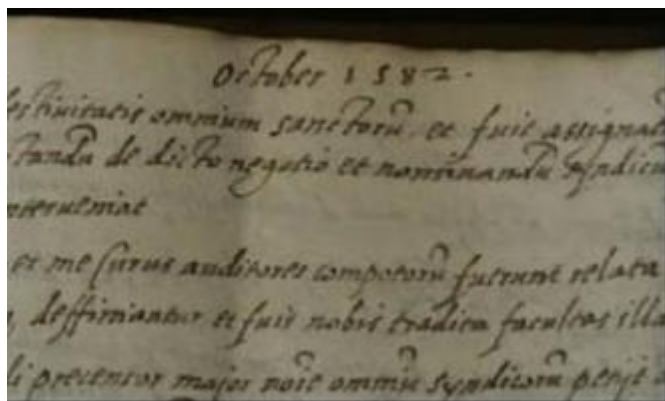 October 1582.
festiuitatis omnium sanctorũ. et fuit assignat
tandũ de dicto negotio et nominandũ syndicũ
interueniat
et me surus auditores compotorũ fuerunt relata
deffiniantur et fuit nobis tradita facultas illa
precentor major noie̅ omniũ syndicorũ petijt